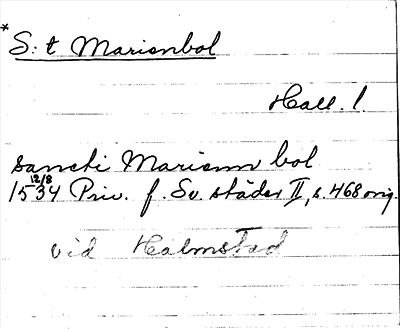 * S:t Marienbol
Hall. l.
sancti Marienn bol
12/8
1534 Priv. f. Sv. städer II, s. 468 orig.
vid Halmstad